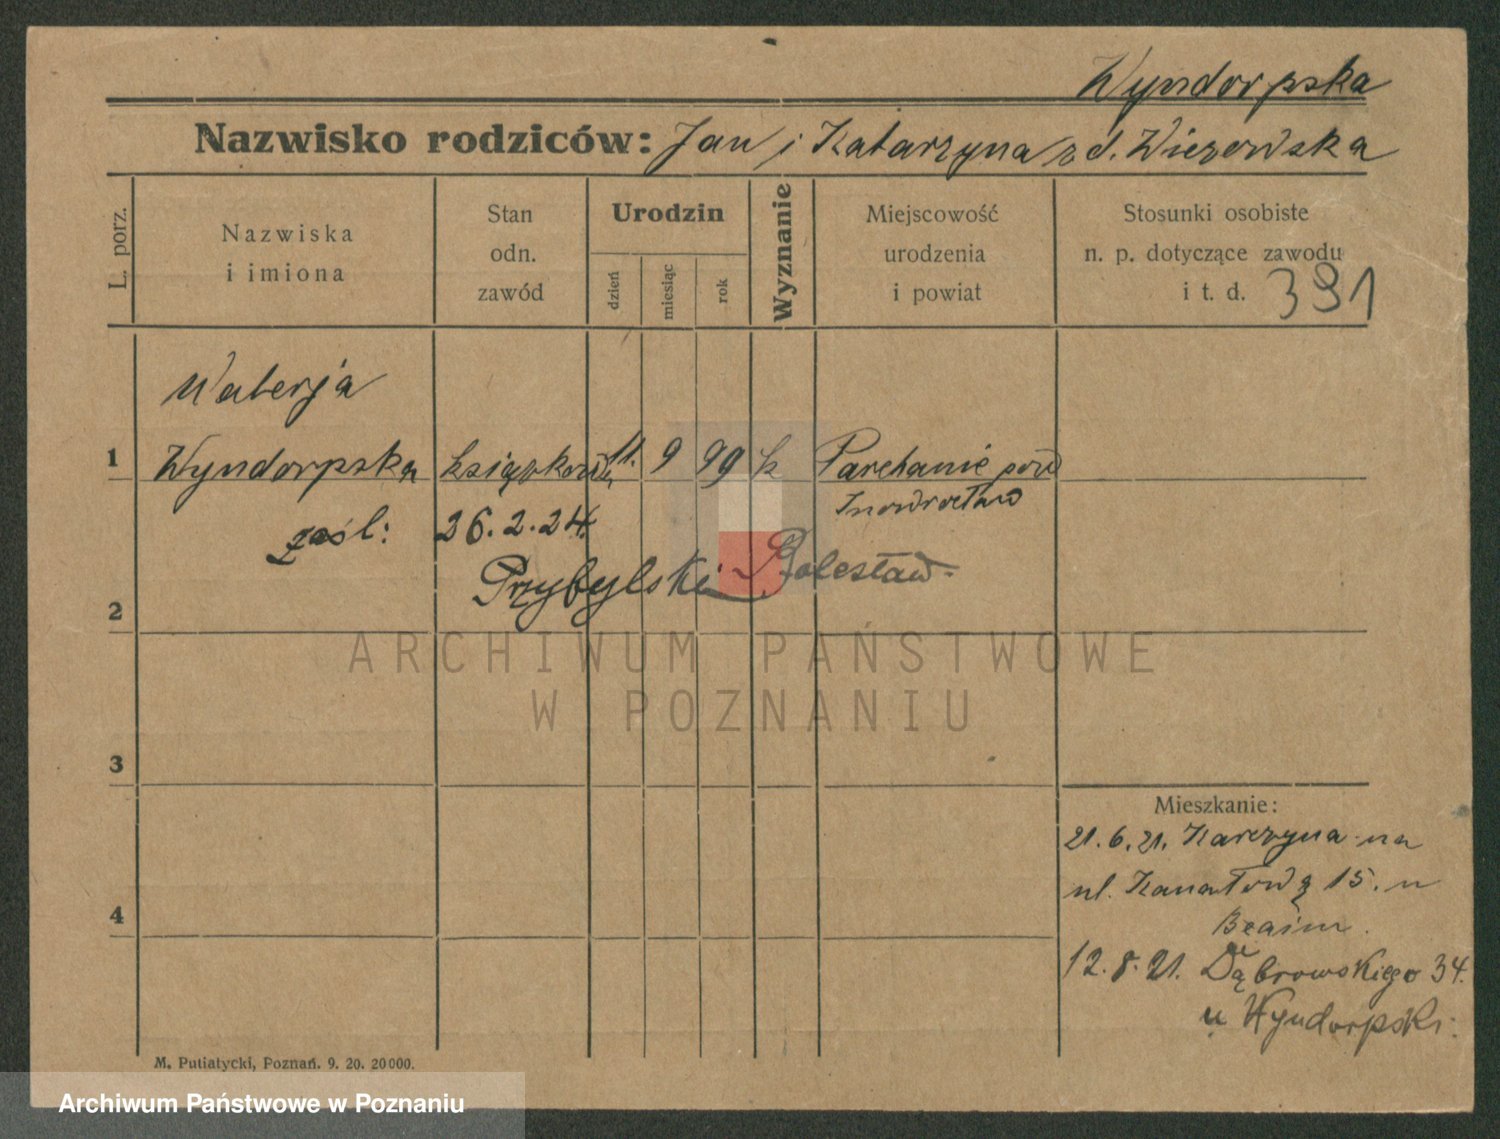 Wyndorpska
Nazwisko rodziców: Jan i Katarzyna z d. Wiezewska
L. porz.
Nazwiska
i imiona
Stan
odn.
zawód
Urodzin
dzień
miesiąc
rok
Wyznanie
Miejscowość
urodzenia
i powiat
Stosunki osobiste
n. p. dotyczące zawodu
i t. d. 391
Walerja
1 Wyndorpska 11. 9 99 k Parchanie pow
Inowrocław
zaśl: 26.2.24.
Przybylski Bolesław
2
ARCHIWUM PAŃSTWOWE
W POZNANIU
3
Mieszkanie:
21.6.21.
ul. Kanałową 15. u
4
12.8.21. Dąbrowskiego 34.
u Wyndorpski.
M. Putiatycki, Poznań. 9. 20. 20000.
Archiwum Państwowe w Poznaniu